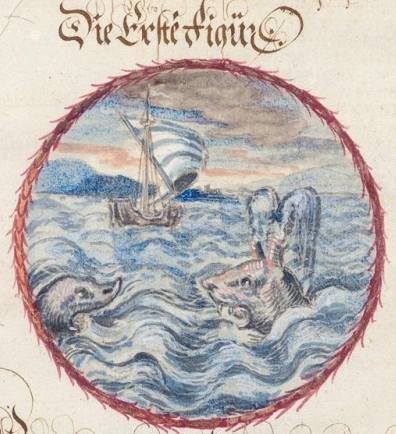 Die Erste Figür